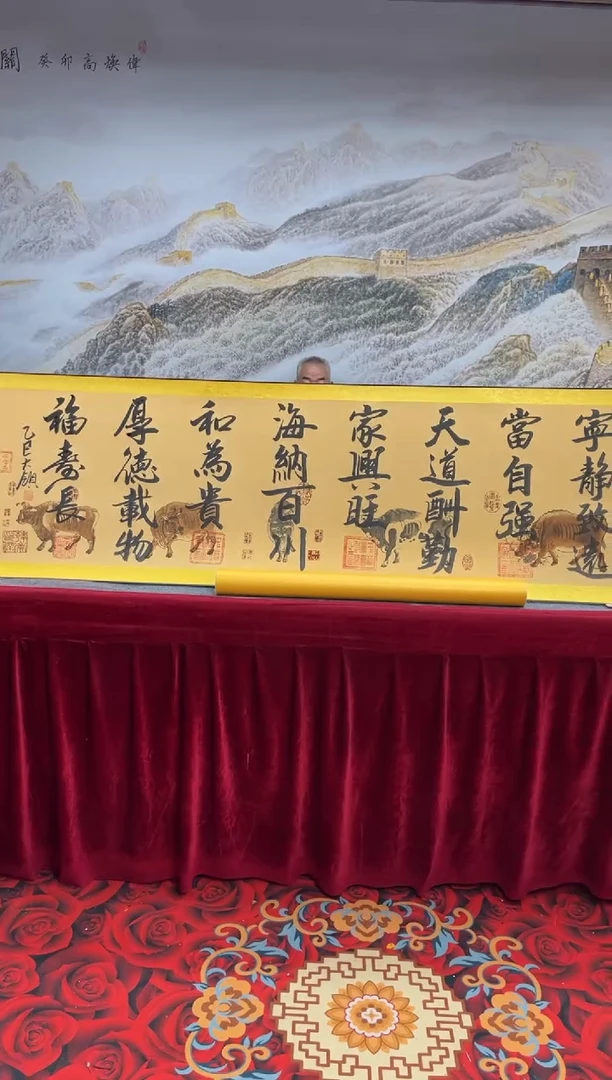 關
癸卯高煥偉
寧靜致遠
當自强
天道酬勤
家興旺
海納百川
和為貴
厚德載物
福壽長
乙巳大領